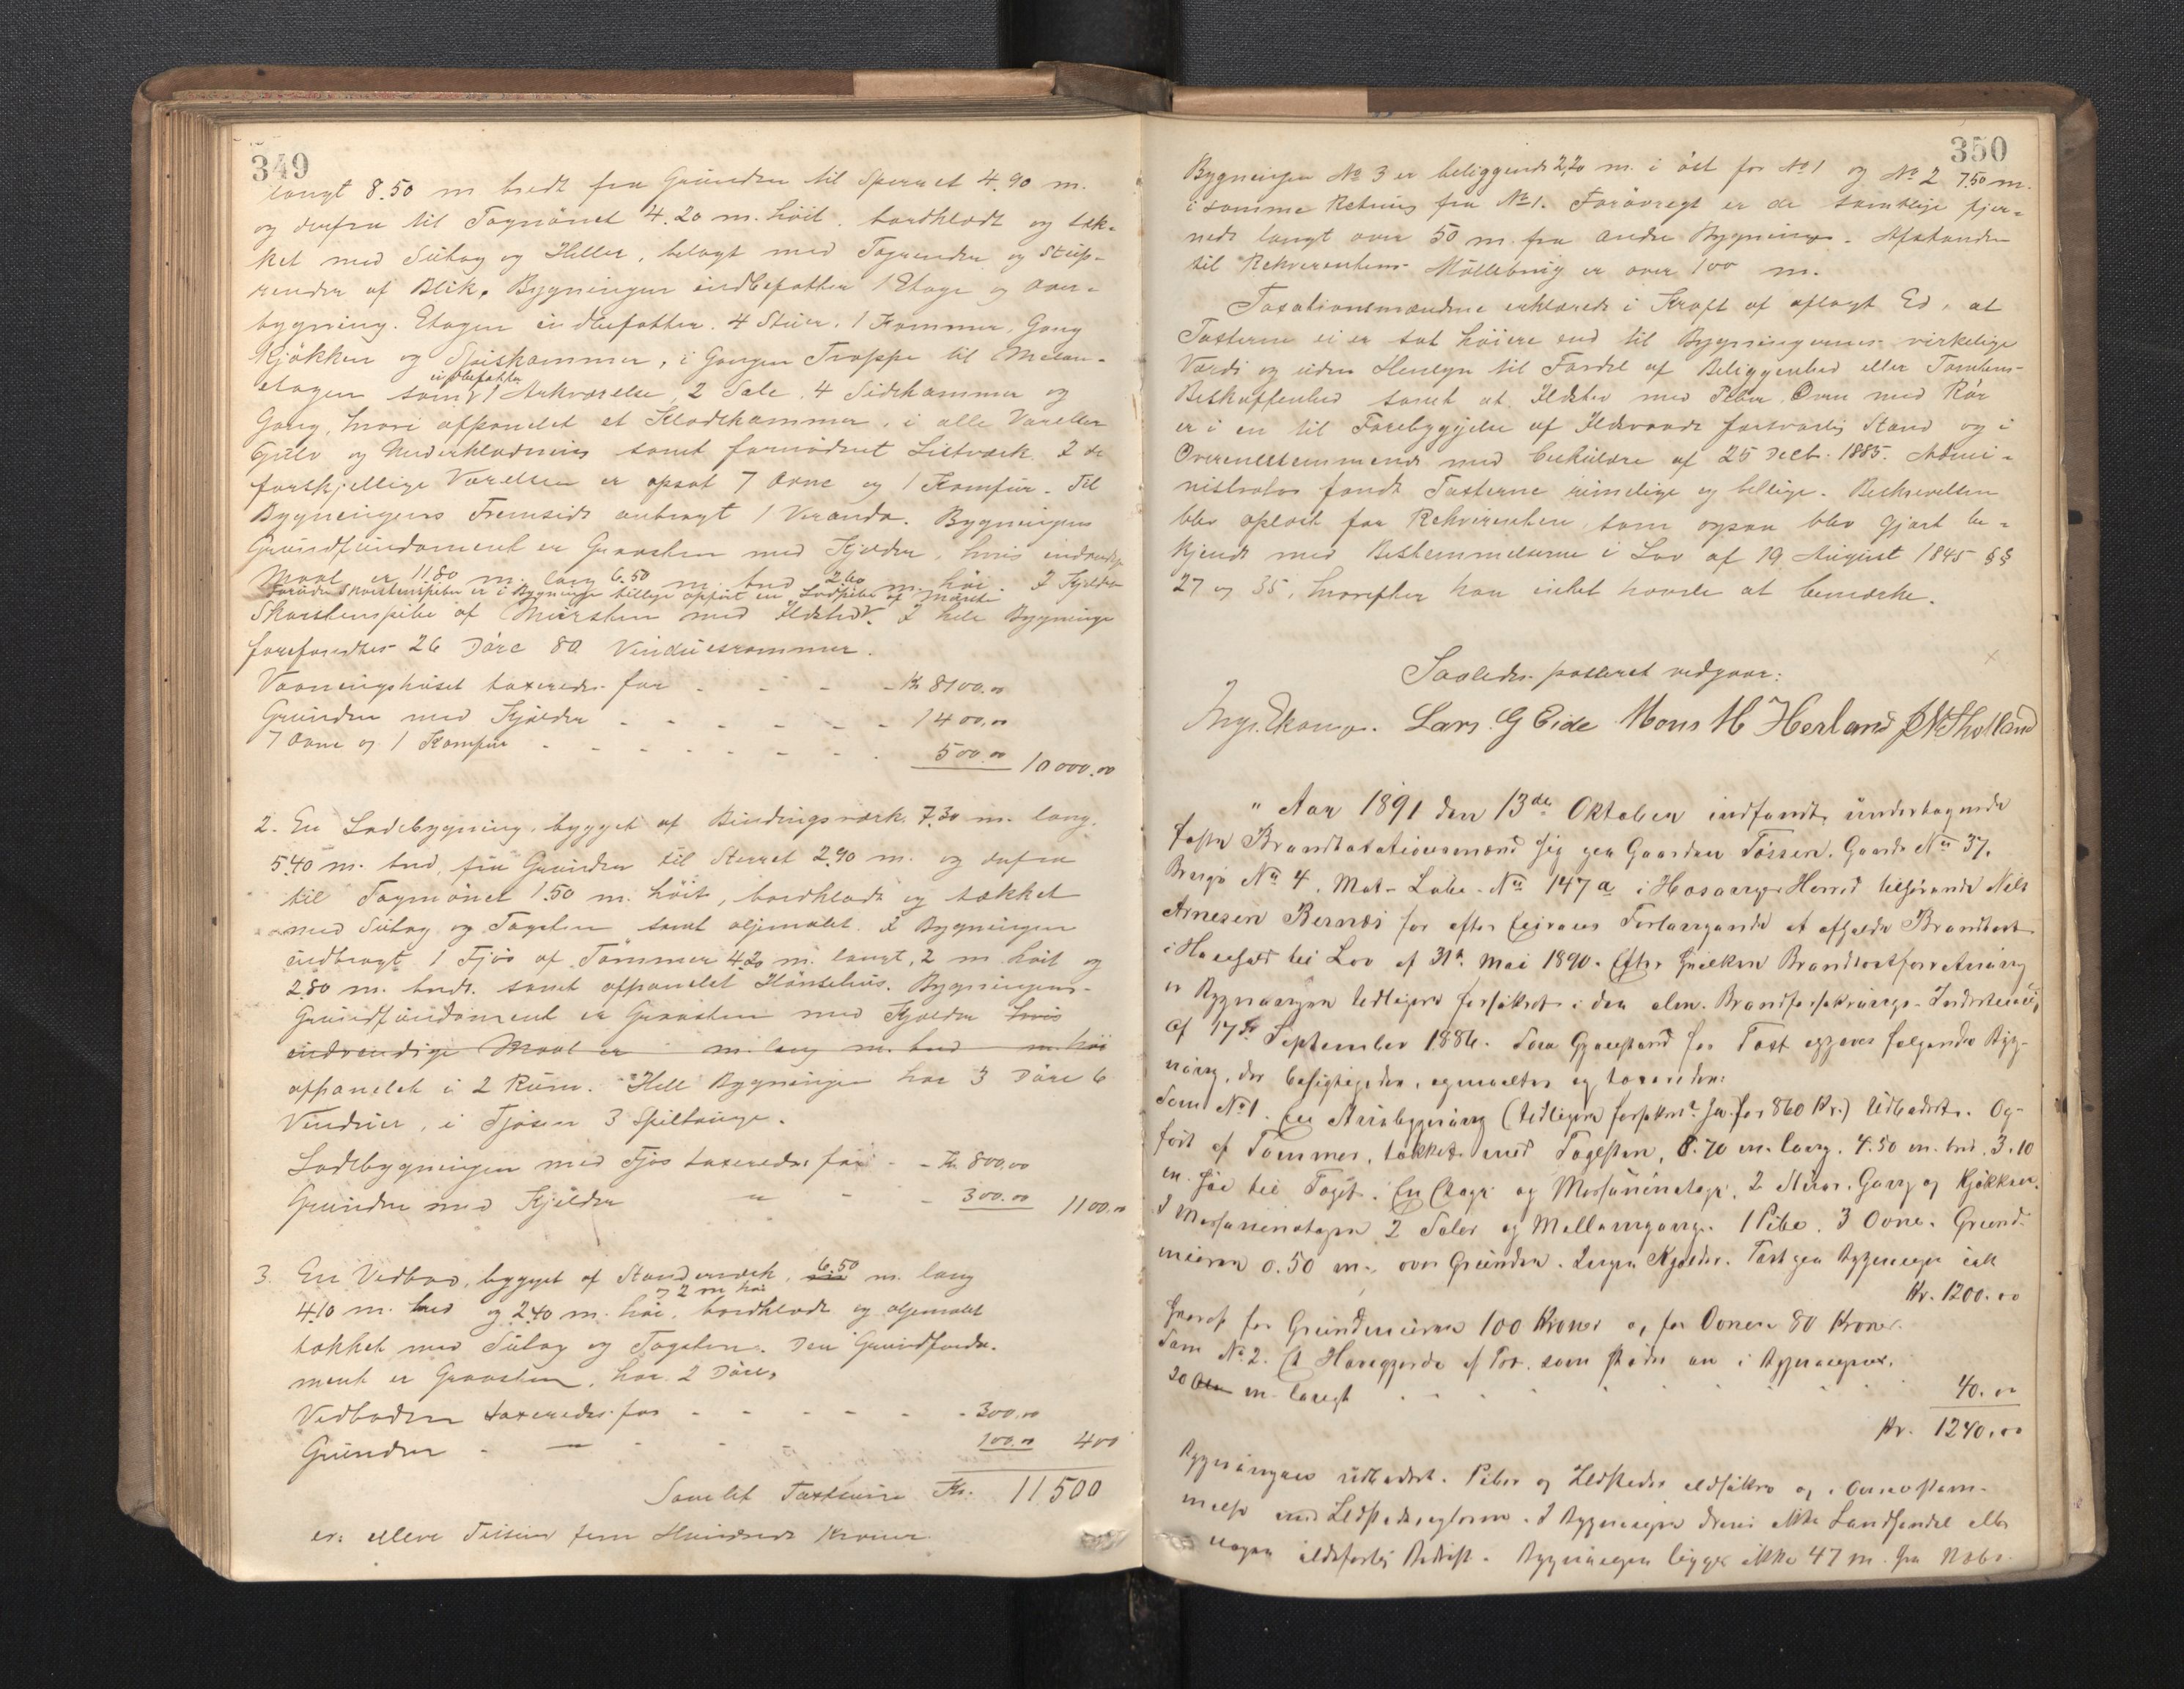 349
langt 8.50 m bredt fra Grunden til Sperret 4.90 m.
og derfra til Tagmönet 4.20 m. höit, bordklædt og tæk-
ket med Sutag og Heller, belagt med Tagrender og Stup-
render af Blik. Bygningen indbefatter 1 Etage og Over-
bygning. Etagen indbefatter 4 Stuer, 1 Kammer, Gang
Kjökken og Spiskammer, i Gangen Trappe til Mesan-
etagen som indbefatter 1 Arkværelse, 2 Sale, 4 Sidekammer og
Gang, hvori afpanelet et Klædekammer, i alle Værelser
Gulv og Underklædning samt fornödent Listværk. I de
forskjellige Værelser er opsat 7 Ovne og 1 Komfur. Til
Bygningens Fremside anbragt 1 Veranda. Bygningens
Grundfundament er Graasten med Kjelder, hvis indvendige
Maal er 11.80 m. lang 6.50 m. bred 2.60 m. höi I Kjelder
Foruden Skorstenspiben er i Bygningen tillige opfört en Lodpibe af Mursten
Skorstenspibe af Mursten med Ildsted. I hele Bygningen
forefandtes 26 Döre 80 Vinduesrammer.
Vaaningshuset taxeredes for - - - - Kr 8100.00
Grunden med Kjelder - - - - - - 1400.00
7 Ovne og 1 Komfur - - - - - - - 500.00 10000.00
2. En Ladebygning, bygget af Bindingsværk 7.30 m. lang,
5.40 m. bred, fra Grunden til Sperret 2.90 m. og derfra
til Tagmönet 1.50 m. höit, bordklædt og tækket
med Sutag og Tagsten samt oljemalet. I Bygningen
indbragt 1 Fjös af Tömmer 4.20 m. langt, 2 m höit og
2.80 m. bredt, samt afpanelet Hönsehus. Bygningens
Grundfundament er Graasten med Kjelder hvis
indvendige Maal er m. lang m. bred m. höi
afpanelet i 2 Rum. Hele Bygningen har 3 Döre 6
Vinduer, i Fjösen 3 Spiltauge.
Ladebygningen med Fjös taxeredes for - - Kr 800.00
Grunden med Kjelder " - - 300.00 1100.00
3. En Vedbod, bygget af Standerværk, 6.50 m. lang
4.10 m. bred og 2.40 m. höi, og 2 m höi bordklædt og oljemalet
tækket med Sutag og Tagsten. Den Grundfunda-
ment er Graasten, har 2 Döre,
Vedboden taxeredes for - - - - - - 300.00
Grunden - — - - 100.00 400
Samlet Taxtsum Kr. 11500
er: elleve Tusind fem Hundrede Kroner
350
Bygningen No 3 er beliggende 2,20 m. i öst for No 1 og No 2 7.50 m.
i samme Retning fra No 1. Forövrigt er de samtlige fjer-
nede langt over 50 m. fra andre Bygninger. Afstanden
til Rekvirentens Möllebrug er over 100 m.
Taxationsmændene erklærede i Kraft af aflagt Ed, at
Taxterne ei er sat höiere end til Bygningernes virkelige
Værdi og uden Hensyn til Fordel af Beliggenhed eller Tomtens
Beskaffenhed samt at Ildsted med Piber, Ovne med Rör
er i en til Forebyggelse af Ildsvaade forsvarlig Stand og i
Overensstemmende med Cirkulære af 25 Decb. 1885. Admi-
nistrator fandt Taxterne rimelige og billige. Beskrivelsen
blev oplæst for Rekvirenten, som ogsaa blev gjort be-
kjendt med Bestemmelserne i Lov af 19 August 1845 §§
27 og 35, hvorefter han intet havde at bemærke.
Saaledes passeret vedgaar:
Lars G Eide Mons M Herland
" Aar 1891 den 13de Oktober indfandt undertegnede
faste Brandtaxationsmænd sig paa Gaarden Tössen, Gaards No 37,
Brugs No 4, Mat. Löbe No 147a i Hosanger Herred tilhörende Nils
Arnesen Bernæs for efter Eierens Forlangende at afholde Brandtaxt
i Henhold til Lov af 31te Mai 1890. Efter hvilken Brandtaxtforretning
er Bygningen tidligere forsikret i den alm. Brandforsikrings-Indretning
af 17de September 1886. Som Gjenstand for Taxt opgaves fölgende Byg-
ning, der besigtigedes, opmaaltes og taxeredes:
Som No 1. En Stuebygning (tidligere forsikret for 860 Kr.) Udbedret. Op-
fört af Tömmer, tækket med Tagsten, 8.70 m. lang, 4.50 m. bred, 3.10
m. höi til Taget. En Etage og Messaninetage, 2 Stuer, Gang og Kjökken.
I Messaninetagen 2 Saler og Mellemgang. 1 Pibe. 3 Ovne. Grund-
muren 0.50 m. over Grunden. Ingen Kjelder. Taxt paa Bygningen ialt
Kr. 1200.00
Heraf for Grundmuren 100 Kroner og for Ovnene 80 Kroner.
Som No 2. Et Havegjerde af Træ, som stöder an i Bygningen,
20 m. langt - - - - - - - 40.00
Kr. 1240.00
Bygningen udbedret. Piber og Ildsteder ildsikre og i Overensstem-
melse med Ildstedsreglerne. I Bygningen drives ikke Landhandel eller
nogen ildsfarlig Bedrift. Bygningen ligger ikke 47 m. fra Nabo-